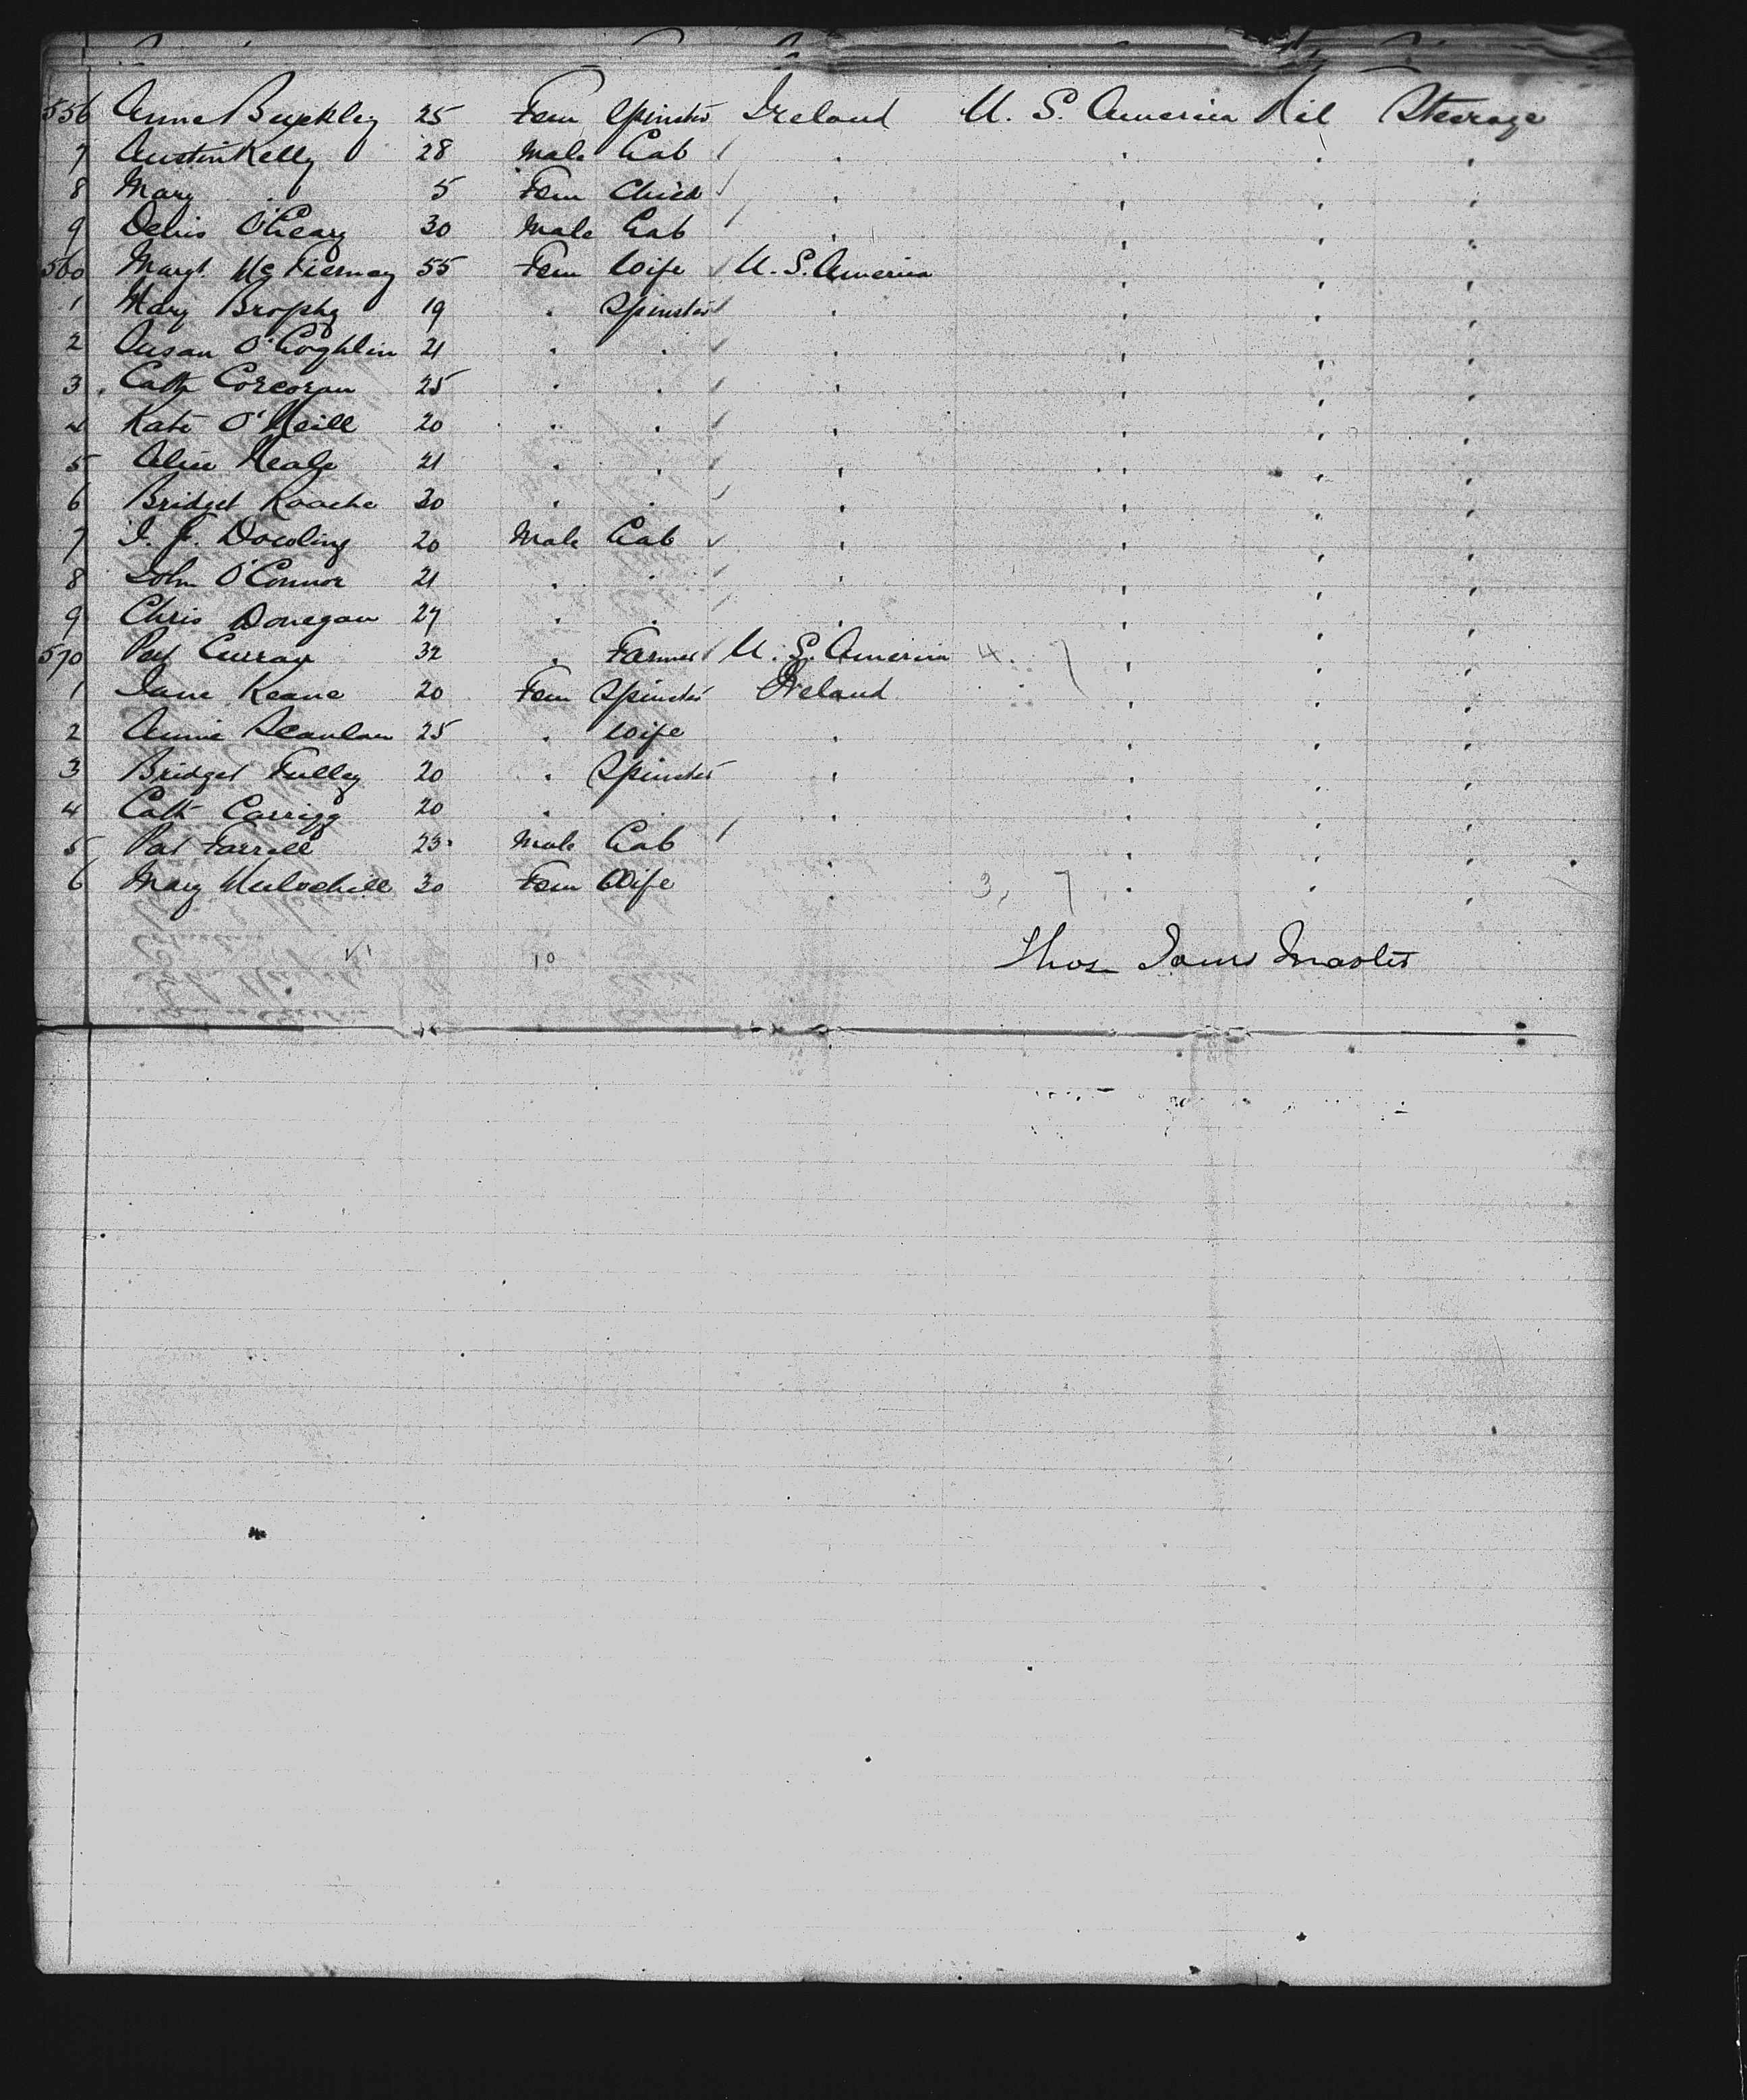 556 Anne Buckley 25 Fem Spinster Ireland U. S. America Nil Steerage
7 Austin Kelly 28 Male Lab
8 Mary " 5 Fem Child
9 Denis O'Leary 30 Male Lab
560 Margt. McTiernay 55 Fem Wife U. S. America
1 Mary Brophy 19 " Spinster
2 Susan O'Coghlin 21 " "
3 Cath Corcoran 25 " "
4 Kate O'Neill 20 " "
5 Alice Neale 21 " "
6 Bridget Roache 20 " "
7 J. F. Dowling 20 Male Lab
8 John O'Connor 21 " "
9 Chris Donegan 27 " "
570 Pat Curran 32 " Farmer U. S. America 4. 7
1 Jane Keane 20 Fem Spinster Ireland
2 Annie Scanlan 25 " Wife
3 Bridget Tulley 20 " Spinster
4 Cath Carrigg 20 " "
5 Pat Farrell 23 Male Lab
6 Mary Mulvehill 30 Fem Wife 3, 7
10
Thos Master